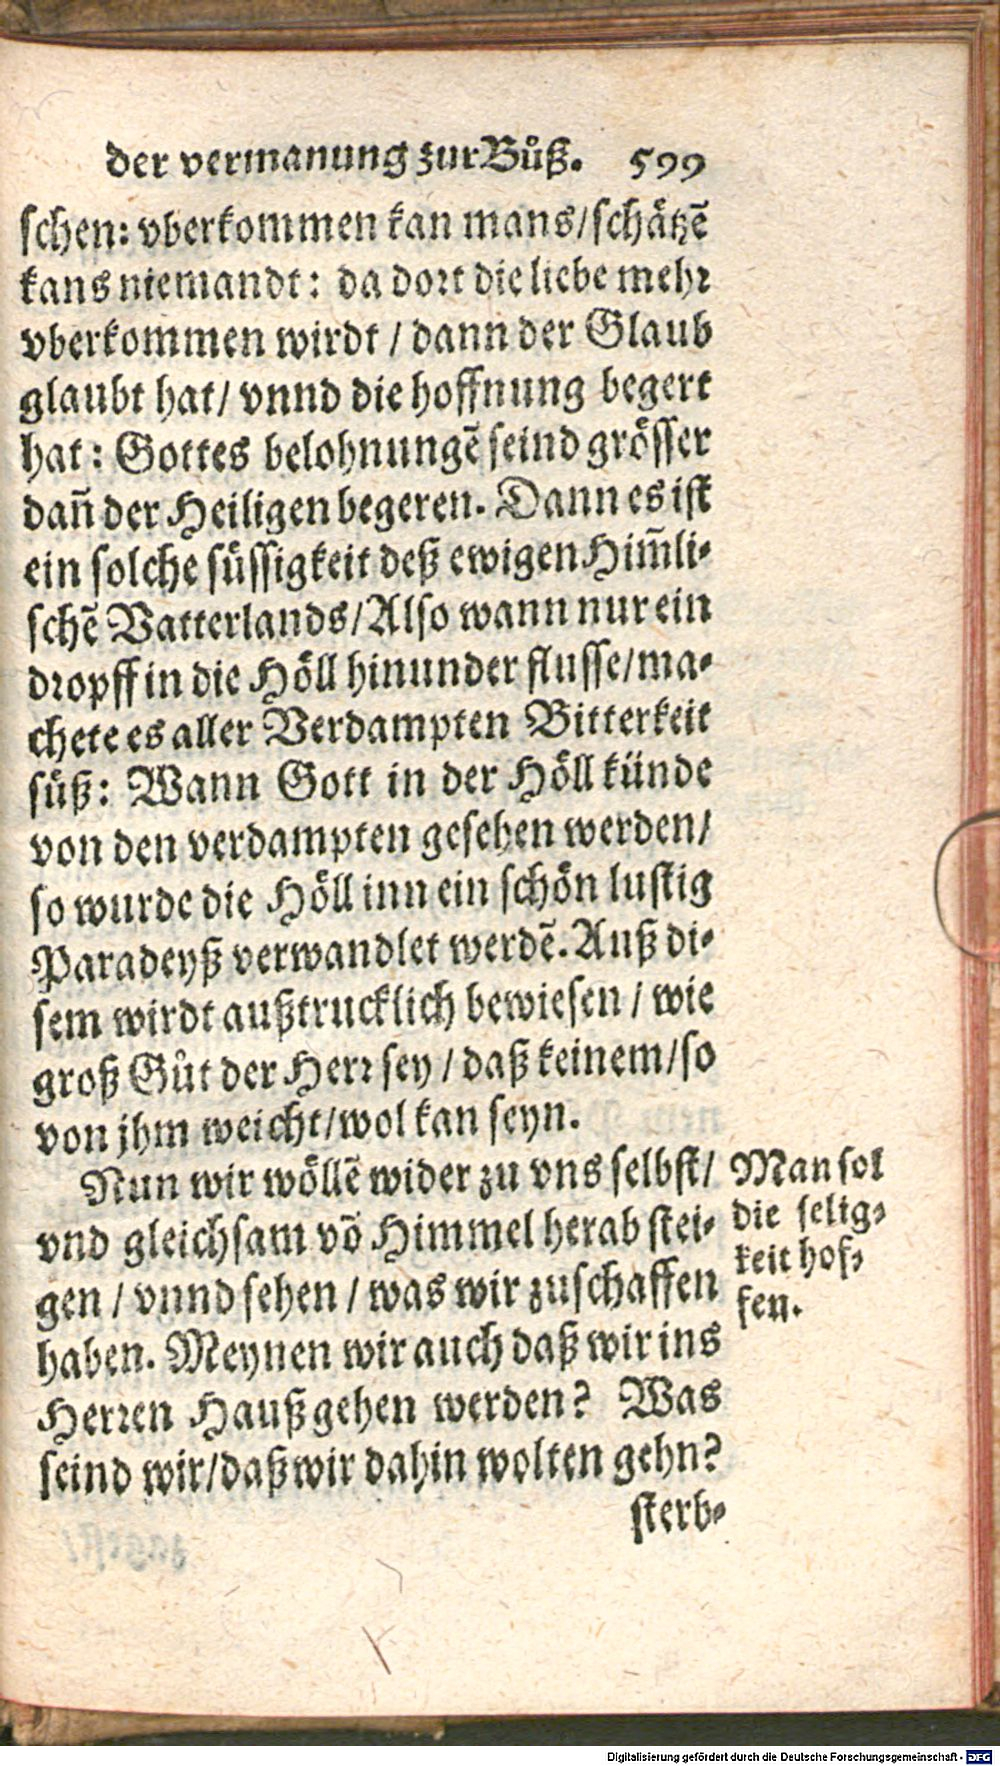 der vermanung zur Bůß. 599
schen: vberkommen kan mans/schätzẽ
kans niemandt: da dort die liebe mehr
vberkommen wirdt / dann der Glaub
glaubt hat/ vnnd die hoffnung begert
hat: Gottes belohnungẽ seind grösser
dañ der Heiligen begeren. Dann es ist
ein solche süssigkeit deß ewigen Him̃li-
schẽ Vatterlands/Also wann nur ein
dropff in die Höll hinunder flusse/ma-
chete es aller Verdampten Bitterkeit
süß: Wann Gott in der Höll künde
von den verdampten gesehen werden/
so wurde die Höll inn ein schön lustig
Paradeyß verwandlet werdẽ. Auß di-
sem wirdt außtrucklich bewiesen / wie
groß Gůt der Herr sey / daß keinem/so
von jhm weicht/wol kan seyn.
Nun wir wöllẽ wider zu vns selbst/
vnd gleichsam võ Himmel herab stei-
gen / vnnd sehen / was wir zuschaffen
haben. Meynen wir auch daß wir ins
Herren Hauß gehen werden? Was
seind wir/daß wir dahin wolten gehn?
sterb-
Man sol
die selig-
keit hof-
fen.
Digitalisierung gefördert durch die Deutsche Forschungsgemeinschaft - DFG